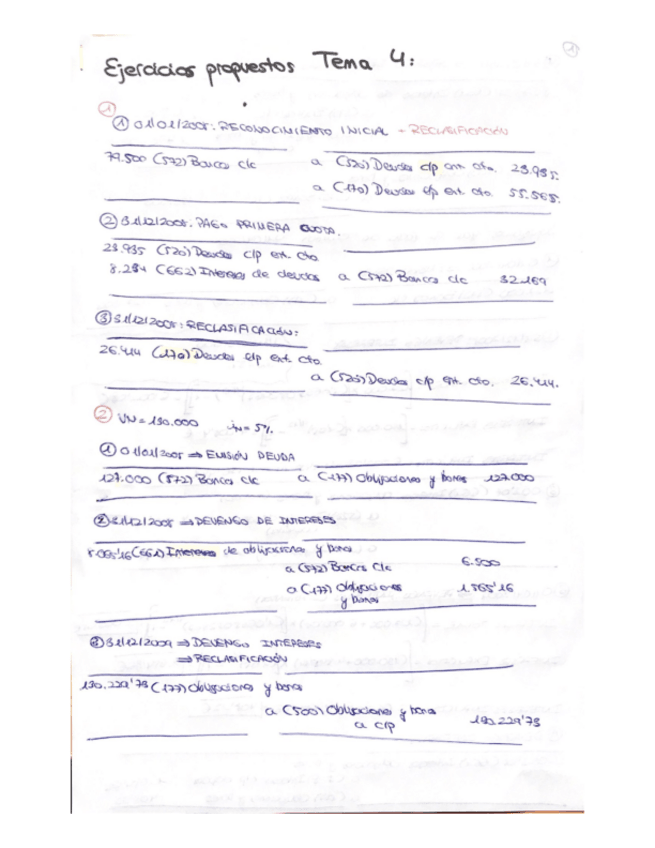 1
Ejercicios propuestos Tema 4:
1
1 01/01/2008: RECONOCIMIENTO INICIAL + RECLASIFICACIÓN
79.500 (572) Bancos c/c a (520) Deudas c/p ent. cto. 23.935.
a (170) Deudas l/p ent. cto. 55.565.
2 31/12/2008: PAGO PRIMERA CUOTA.
23.935 (520) Deudas c/p ent. cto
8.234 (662) Intereses de deudas a (572) Bancos c/c 32.169
3 31/12/2008: RECLASIFICACIÓN:
26.414 (170) Deudas l/p ent. cto.
a (520) Deudas c/p ent. cto. 26.414.
2 VN = 130.000 iN = 5%.
1 01/01/2008 ⇒ EMISIÓN DEUDA
127.000 (572) Bancos c/c a (177) Obligaciones y bonos 127.000
2 31/12/2008 ⇒ DEVENGO DE INTERESES
(661) Intereses de obligaciones y bonos
a (572) Bancos c/c 6.500
a (177) Obligaciones 1.565'16
y bonos
3 31/12/2009 ⇒ DEVENGO INTERESES
⇒ RECLASIFICACIÓN
130.229'73 (177) Obligaciones y bonos
a (500) Obligaciones y bonos 130.229'73
a c/p